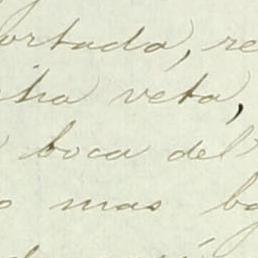 ortada, re
veta,
boca del
o mas ba